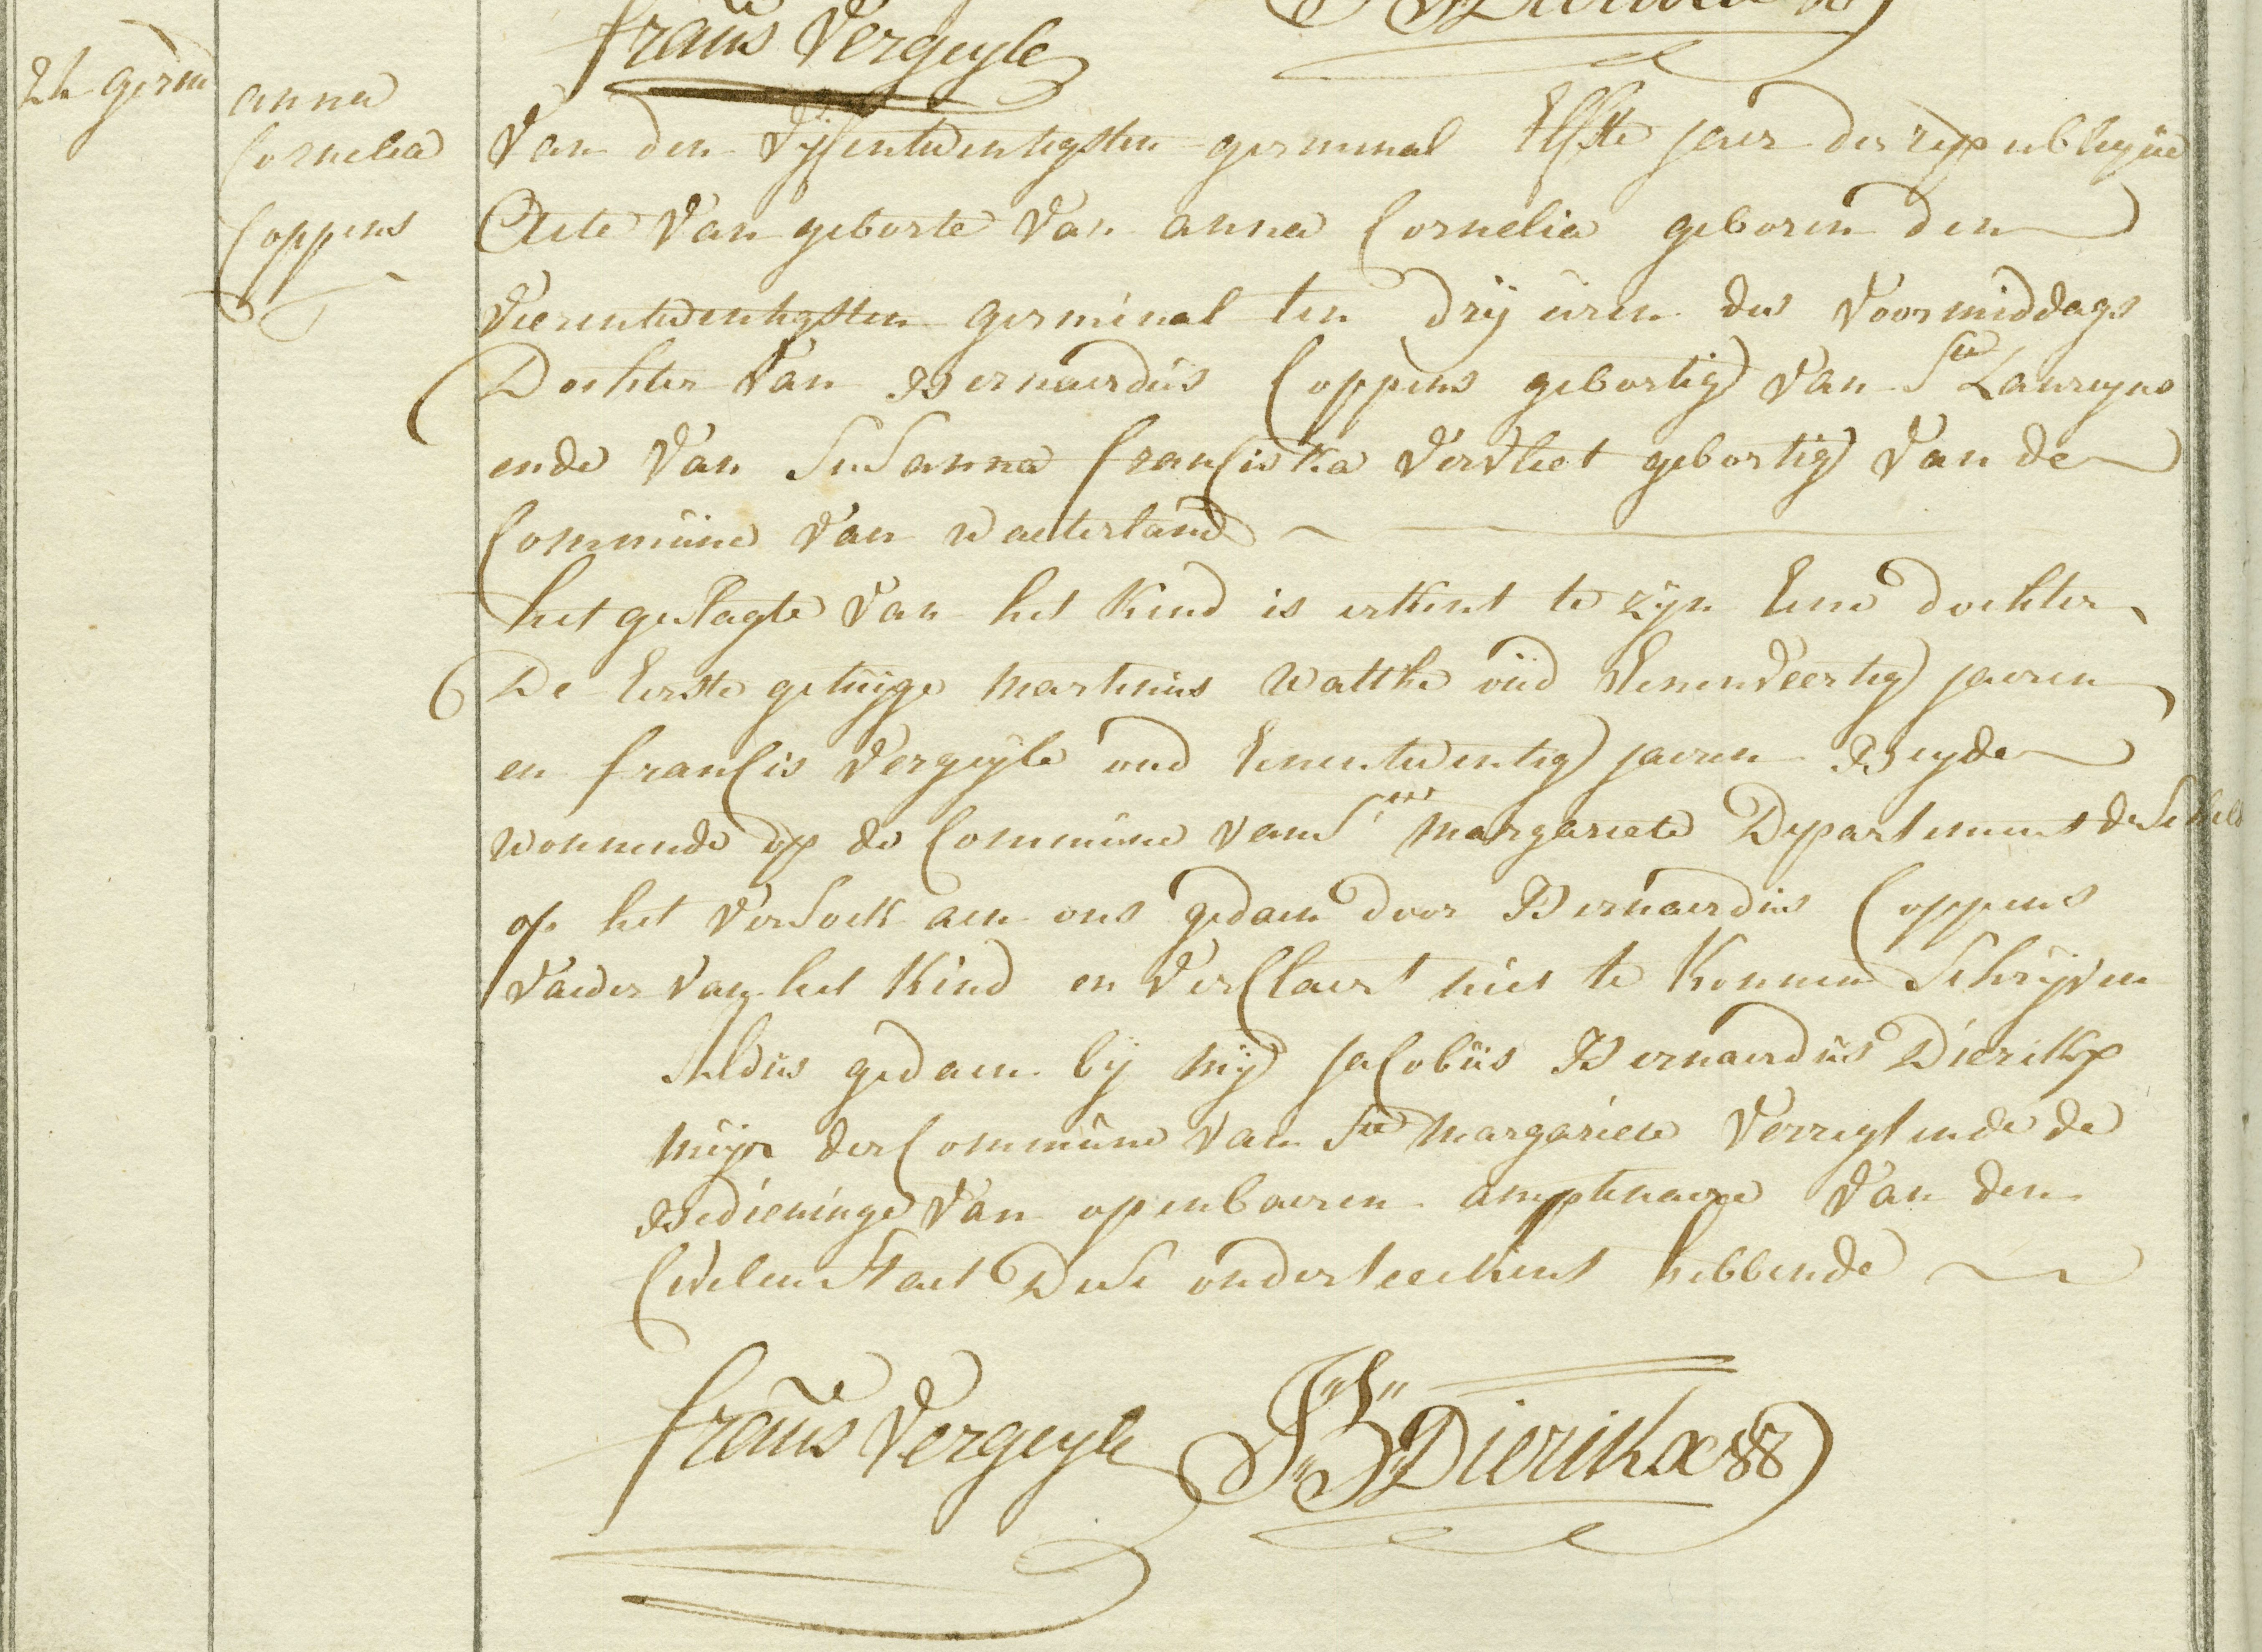 frans Vergeyle
24 germ
anna
Cornelia
Coppens
Van den Vyfentwentigsten germinal Elfste jaer der republicque
Acte van geborte van anna Cornelia geboren den
Vierentwentigsten germinal ten drÿ uren des Voormiddags
Dochter van Bernaerdus Coppens gebortig van Ste Laureyns
ende van SuSanna franciska Vervliet gebortig van de
Commune van waeterland
het geslagte van het Kind is erkent te zyn Eene dochter
De Eerste getuyge martinus Watthé oud Eenenveertig jaeren
en francis Vergeyle oud Eenentwentig jaeren Beyde
wonnende op de Commune van Ste margariete Departement de Scheld
op het VerSoek aen ons gedaen door Bernaerdus Coppens
Vaeder van het Kind en Verclaert niet te konnen Schryven
Aldus gedaen bÿ mÿ Jacobus Bernaerdus Dierikx
meyr der Commune van Ste margariete Verrigtende de
Bedieninge van openbaeren amptenaere van den
Civilen Staet Dese onderteekent hebbende
frans Vergeyle J B Dierikx